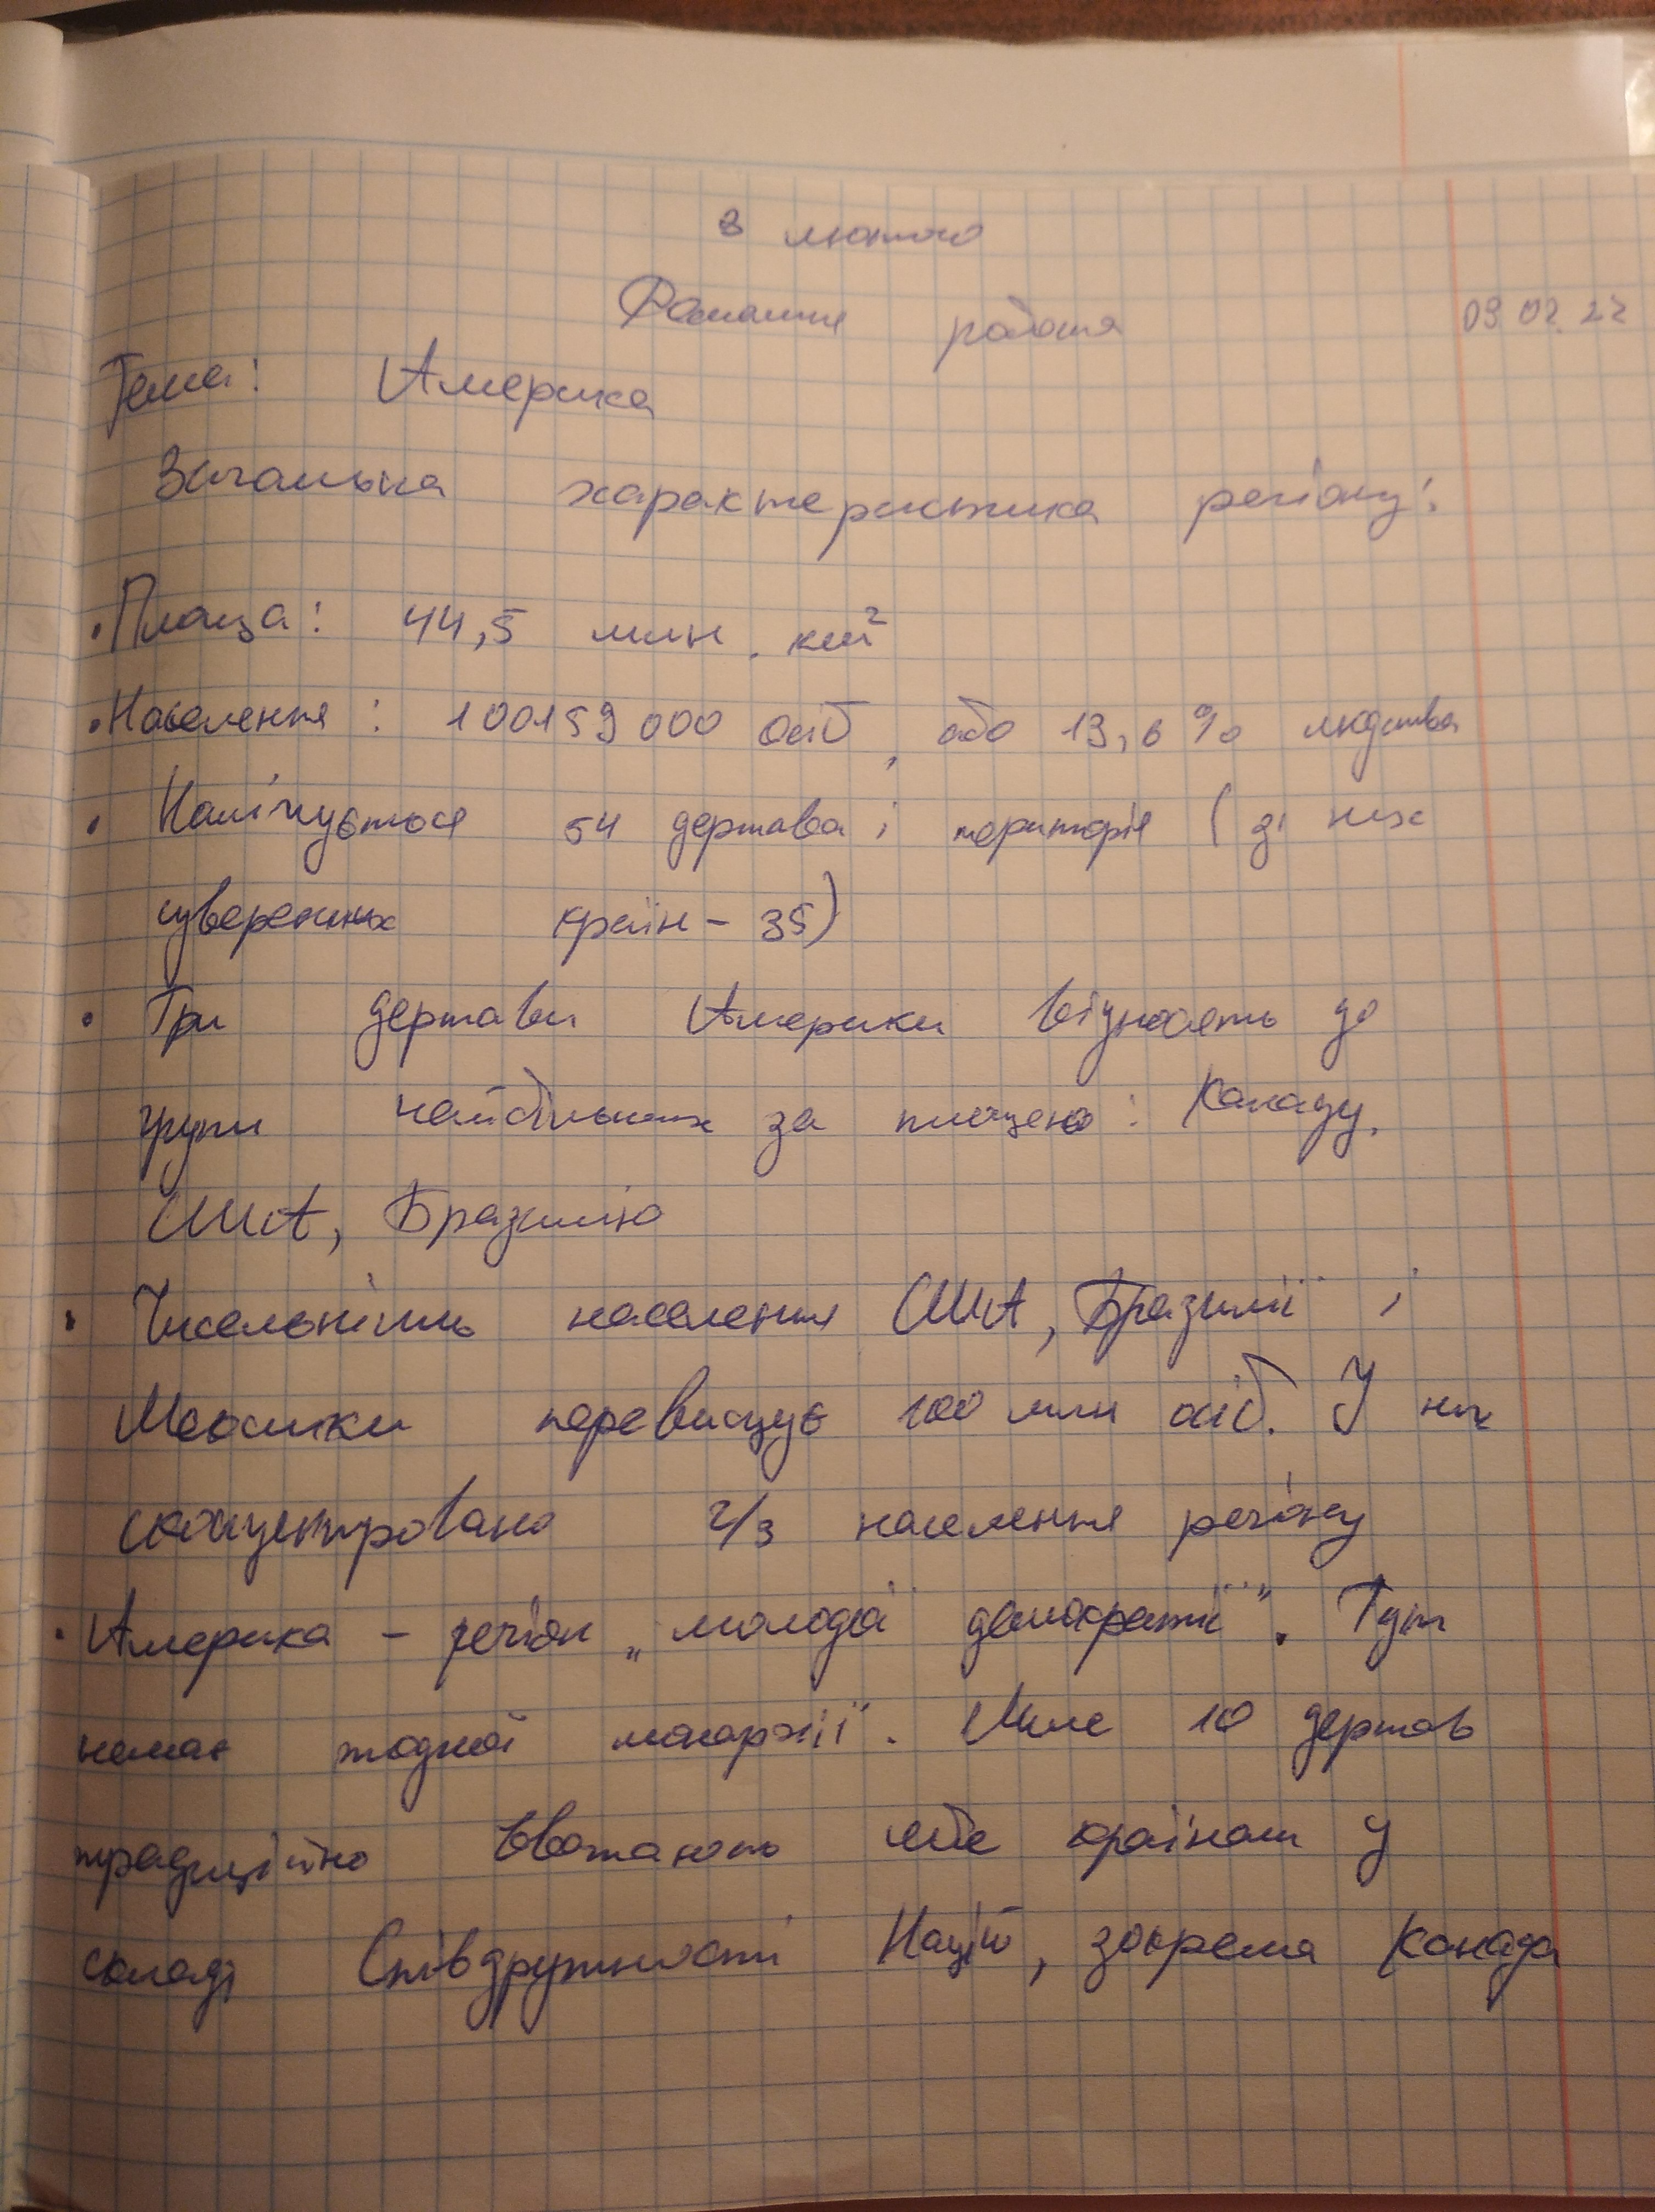 3 лютого
Домашня робота
09.02.22
Тема: Америка
Загальна характеристика регіону:
• Площа: 44,5 млн. км²
• Населення: 100159000 осіб, або 13,6% людства
• Налічується 54 держава і територія (зі них
суверенних країн - 35)
• Три держави Америки відносять до
групи найбільших за площею: Канаду,
США, Бразилію
• Чисельність населення США, Бразилії і
Мексики перевищує 100 млн осіб. У них
сконцентровано 2/3 населення регіону
• Америка - регіон „молодої демократії". Тут
немає жодної монархії. Лише 10 держав
традиційно вважають себе країнами у
складі Співдружності Націй, зокрема Канада